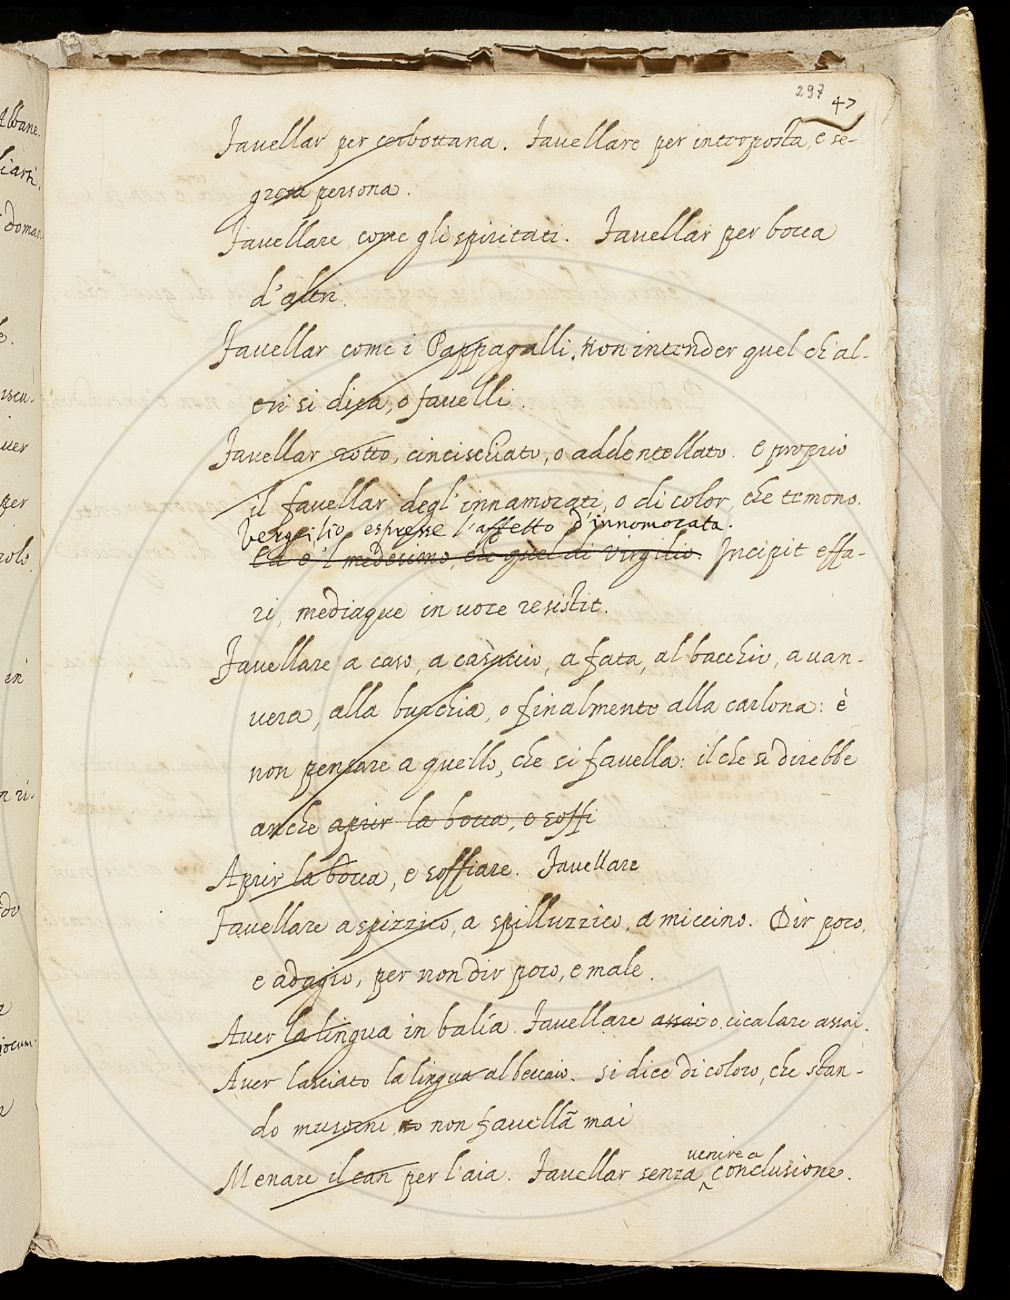 297 47
Favellar per cerbottana. Favellare per interposta, e se-
greta persona.
Favellare come gli spiritati. Favellar per bocca
d'altri.
Favellar come i Pappagalli, non intender quel ch'al-
tri si dica, o favelli.
Favellar rotto, cincischiato, o addentellato. e proprio
il favellar degl'innamorati, o di color, che temono.
Vergilio espresse l'affetto d'innomorata.
Ed è 'l medesimo, ch quel di Virgilio. Incipit effa-
ri, mediaque in voce resistit.
Favellare a caso, a casaccio, a fata, al bacchio, a van-
vera, alla burchia, o finalmente alla carlona: è
non pensare a quello, che si favella: il che si direbbe
anche aprir la bocca, e soffi
Aprir la bocca, e soffiare. Favellare
Favellare a spizzico, a spilluzzico, a miccino. Dir poco,
e adagio, per non dir poco, e male.
Aver la lingua in balía. Favellare assai o cicalare assai.
Aver lasciato la lingua al beccaio. si dice di coloro, che stan-
do musorni non favellā mai
venire a
Menare il can per l'aia. Favellar senza conclusione.
Albane.
iarti,
doman
e.
uer
per
rolo.
in
n ri-
iocum-